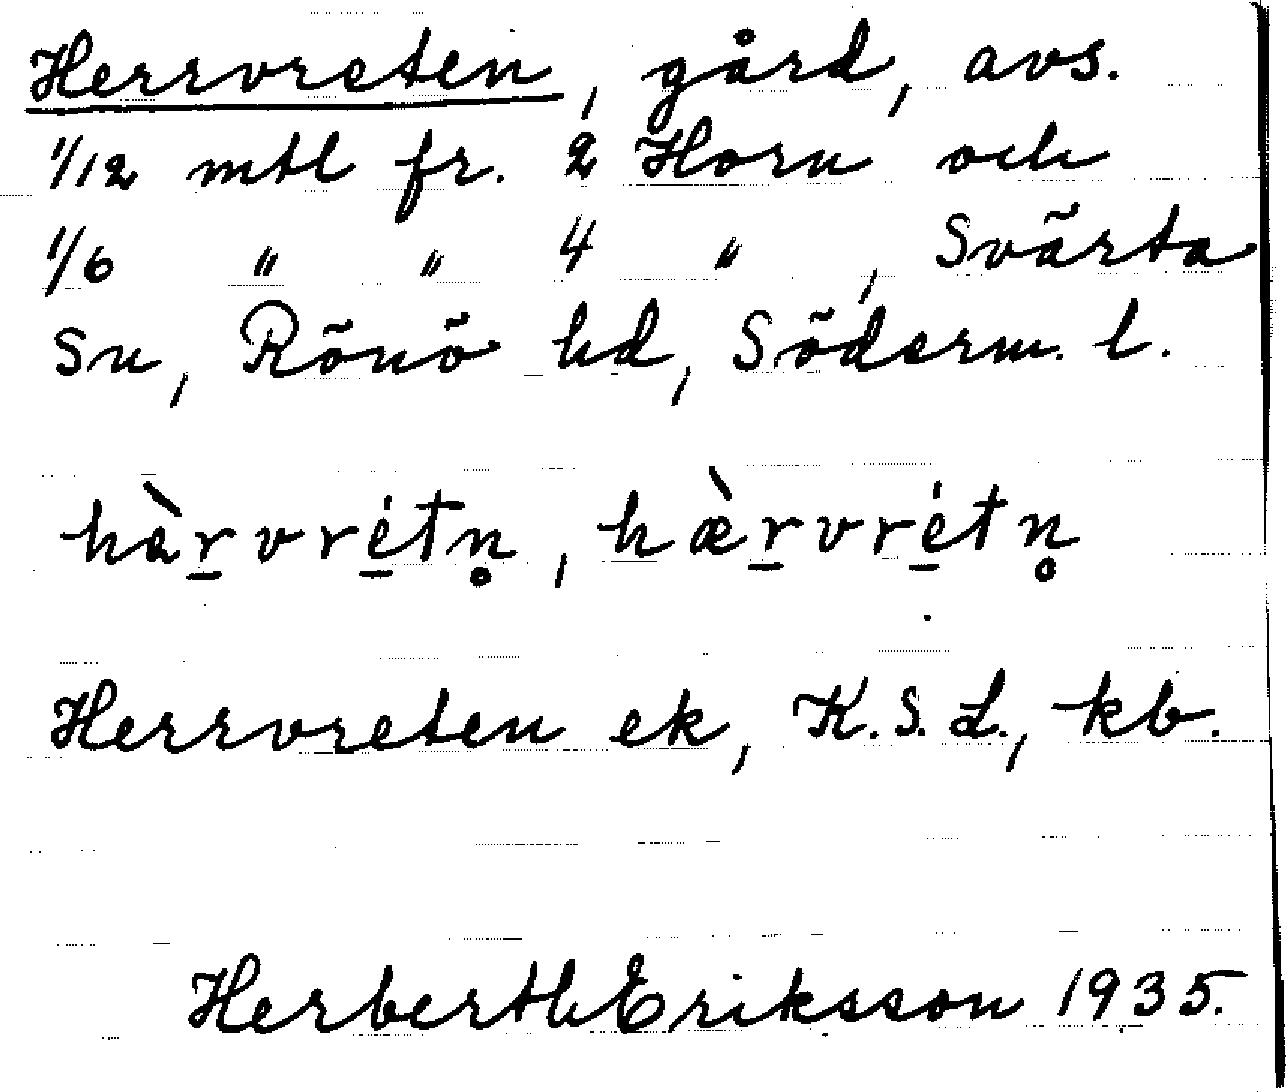 Herrvreten, gård, avs.
1/12 mtl fr. 2 Horn och
1/6 " " 4 " , Svärta
Sn, Rönö hd, Söderm. l.
hàr̠vré̠tn̥, hæ̀r̠vré̠tn̥
Herrvreten ek, K.S.L., kb.
Herbert Eriksson 1935.